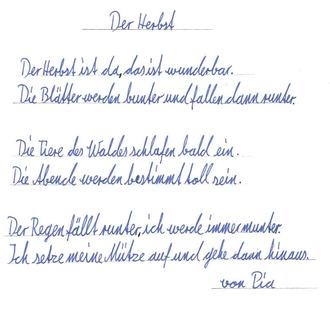 Der Herbst
Der Herbst ist da, das ist wunderbar.
Die Blätter werden bunter und fallen dann runter.
Die Tiere des Waldes schlafen bald ein.
Die Abende werden bestimmt toll sein.
Der Regen fällt runter, ich werde immer munter.
Ich setze meine Mütze auf und gehe dann hinaus.
von Pia